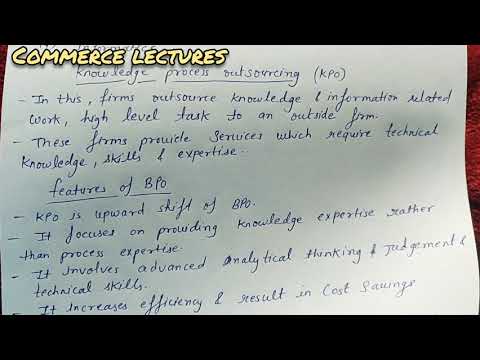 COMMERCE LECTURES
Knowledge process outsourcing (KPO)
- In this, firms outsource knowledge & information related
work, high level task to an outside firm.
- These firms provide services which require technical
knowledge, skills & expertise.
features of BPO
- KPO is upward shift of BPO.
- It focuses on providing knowledge expertise rather
than process expertise.
- It involves advanced analytical thinking & judgement &
technical skills.
- It increases efficiency & result in cost savings